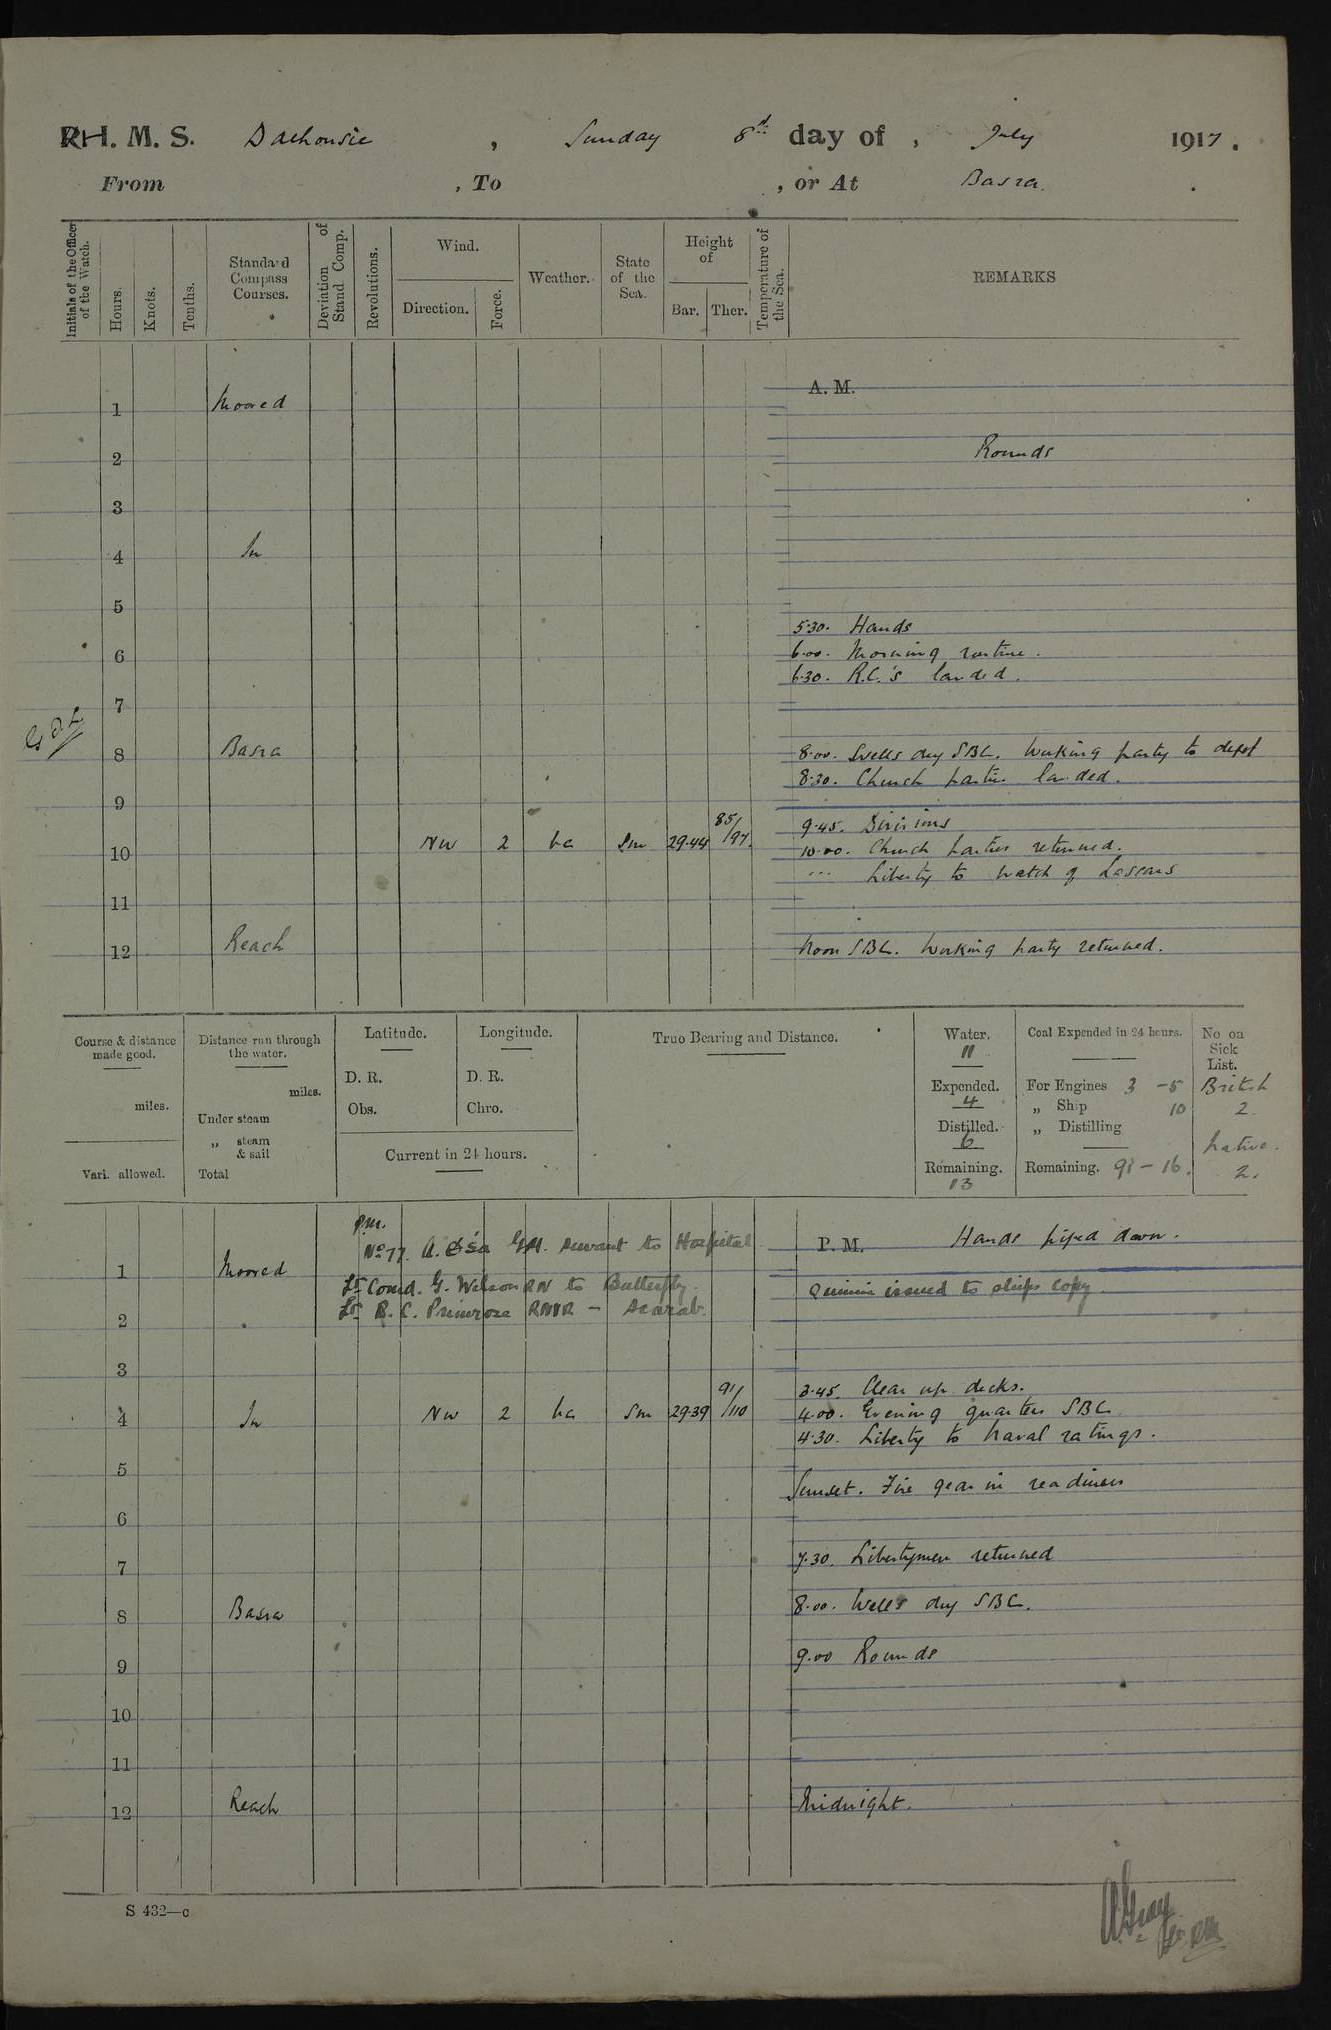 R.H. M. S. Dalhousie , Sunday 8th day of , July 1917.
From , To , or At Basra.
Initials of the Officer of the Watch.
Hours.
Knots.
Tenths.
Standard Compass Courses.
Deviation of Stand Comp.
Revolutions.
Wind.
Direction.
Force.
Weather.
State of the Sea.
Height of
Bar. Ther.
Temperature of the Sea.
REMARKS
A. M.
1 Moored
2 Rounds
3
4 In
5
5.30. Hands
6 6.00. Morning routine.
6.30. R.C.'s landed.
7
8 Basra 8.00. Wells dry SBC. Working party to depot
8.30. Church parties landed.
9
9.45. Divisions
10 NW 2 bc Sm 29.44 85/97. 10.00. Church parties returned.
... Liberty to watch of Lascars
11
12 Reach Noon SBC. Working party returned.
Course & distance made good.
miles.
Vari. allowed.
Distance run through the water.
miles.
Under steam
„ steam & sail
Total
Latitude.
D. R.
Obs.
Longitude.
D. R.
Chro.
Current in 24 hours.
True Bearing and Distance.
Water.
11
Expended.
4
Distilled.
6
Remaining.
13
Coal Expended in 24 hours.
For Engines 3 - 5
„ Ship 10
„ Distilling
Remaining. 91 - 16.
No on Sick List.
British
2
Native.
2.
P. M. Hands piped down.
p.m.
No 77. A. servant to Hospital
1 Moored
Lt Comd. G. Wilson RN to Butterfly.
Quinine issued to ships copy.
Lt R. C. Primrose RNVR - Scarab.
2
3
3.45. Clear up decks.
4 In NW 2 bc Sm 29.39 91/110 4.00. Evening quarters SBC
4.30. Liberty to Naval ratings.
5
Sunset. Fire gear in readiness
6
7 7.30. Libertymen returned
8 Basra 8.00. Wells dry SBC.
9 9.00 Rounds
10
11
12 Reach Midnight.
S 432—c
A Gray